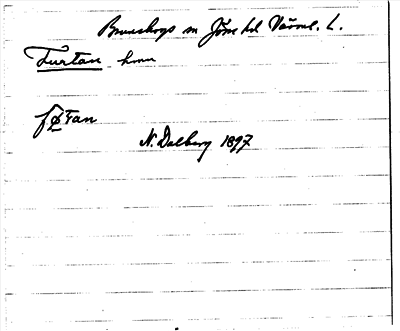 Brunskogs sn Jösse hd Värml. L.
Furtan hmn
fətan
N. Dalberg 1897